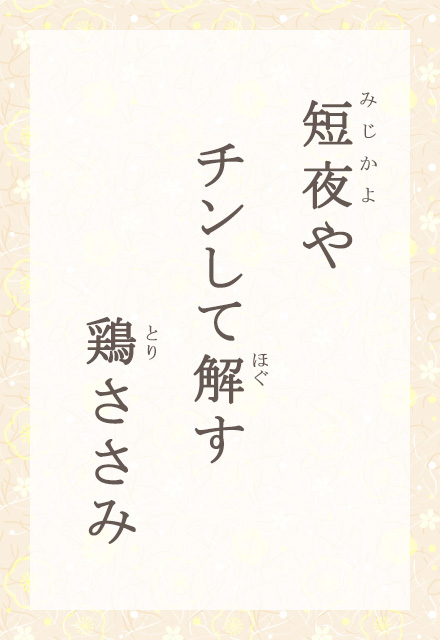 短夜や
みじかよ
チンして解す
ほぐ
鶏ささみ
とり